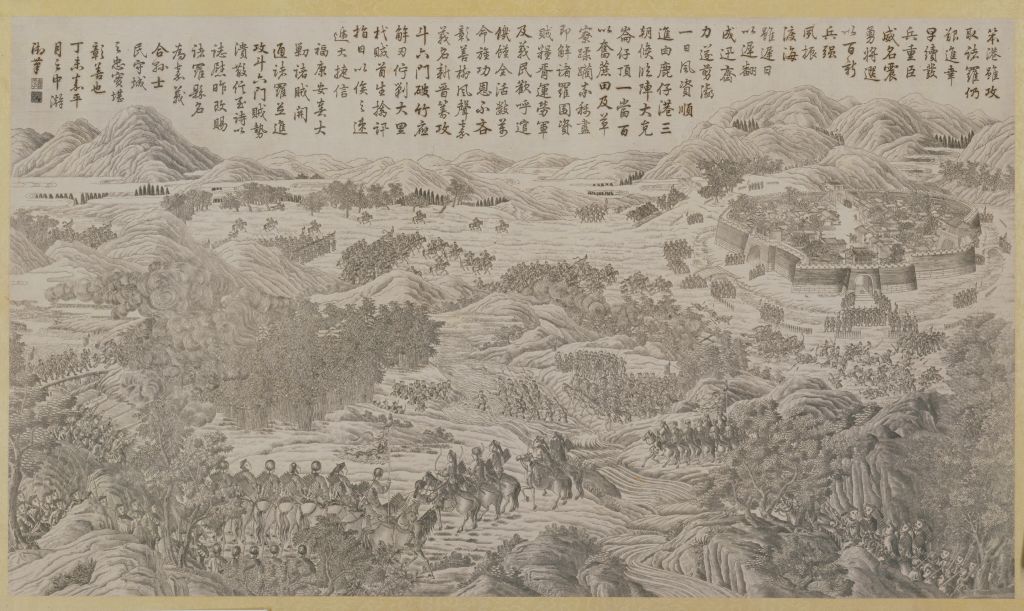 笨港雖攻
取諸羅仍
進
續發
兵重臣
威名震
勇將選
以百
兵強
夙振
渡海
雖遲日
以遲翻
成迅
力遂剪滅
一日風資順
進由鹿仔港三
朝候陸陣大克
崙仔頂一當百
以奮蔗田及草
寮蹂躪盡
即解諸羅圍資
賊糧運勞軍
及義民歡呼喧
饑饉全活數萬
命旌功恩不吝
彰善樹風聲嘉
義名新晉籌攻
斗六門破竹應
解刃佇剿大里
杙賊首生擒訊
指日以俟之速
遞大捷信
福康安奏大
勦諸賊開
通諸羅並進
攻斗六門賊勢
潰散行至詩以
誌慰昨改賜
諸羅縣名
為嘉義
士
民守城
之忠實堪
彰善也
丁未嘉平
月中澣
御筆